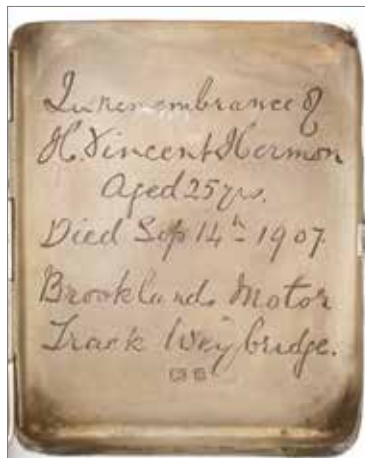 In remembrance of
H. Vincent Hermon
Aged 25 yrs.
Died Sep 14th 1907.
Brooklands Motor
Track Weybridge.